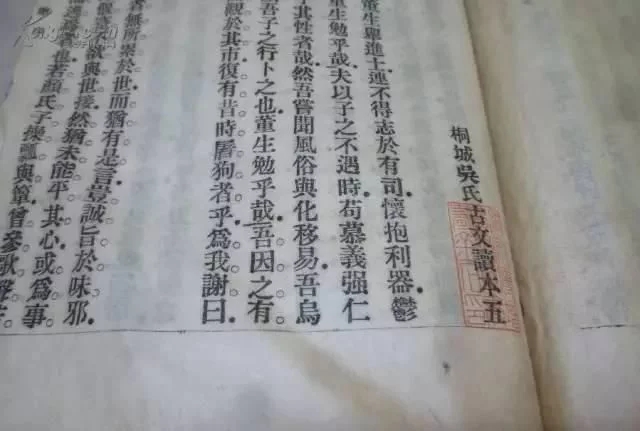 桐城吳氏古文讀本五
董生舉進士連不得志於有司.懷抱利器.鬱
董生勉乎哉.夫以子之不遇時.苟慕義强仁
其性者哉.然吾嘗聞風俗與化移易.吾烏
吾子之行卜之也.董生勉乎哉.吾因之有
觀於其市復有昔時屠狗者乎.爲我謝曰.
無所求於世而猶有是言豈誠旨於味邪
與世接然猶未能平其心或爲事
者也若顏氏子操瓢與簞曾參歌聲